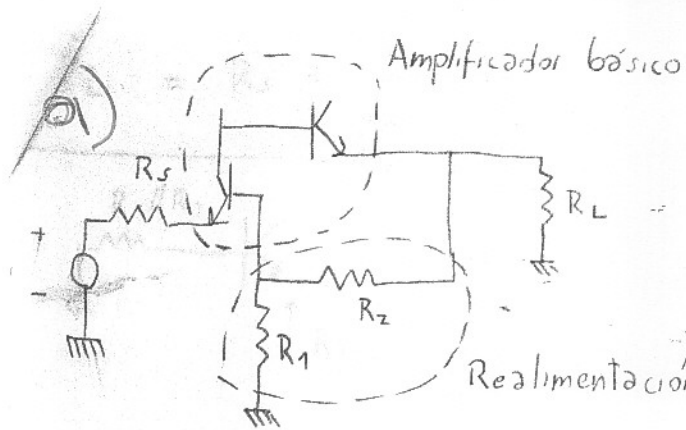 a)
Amplificador básico
Rs
RL
+
-
R2
R1
Realimentación